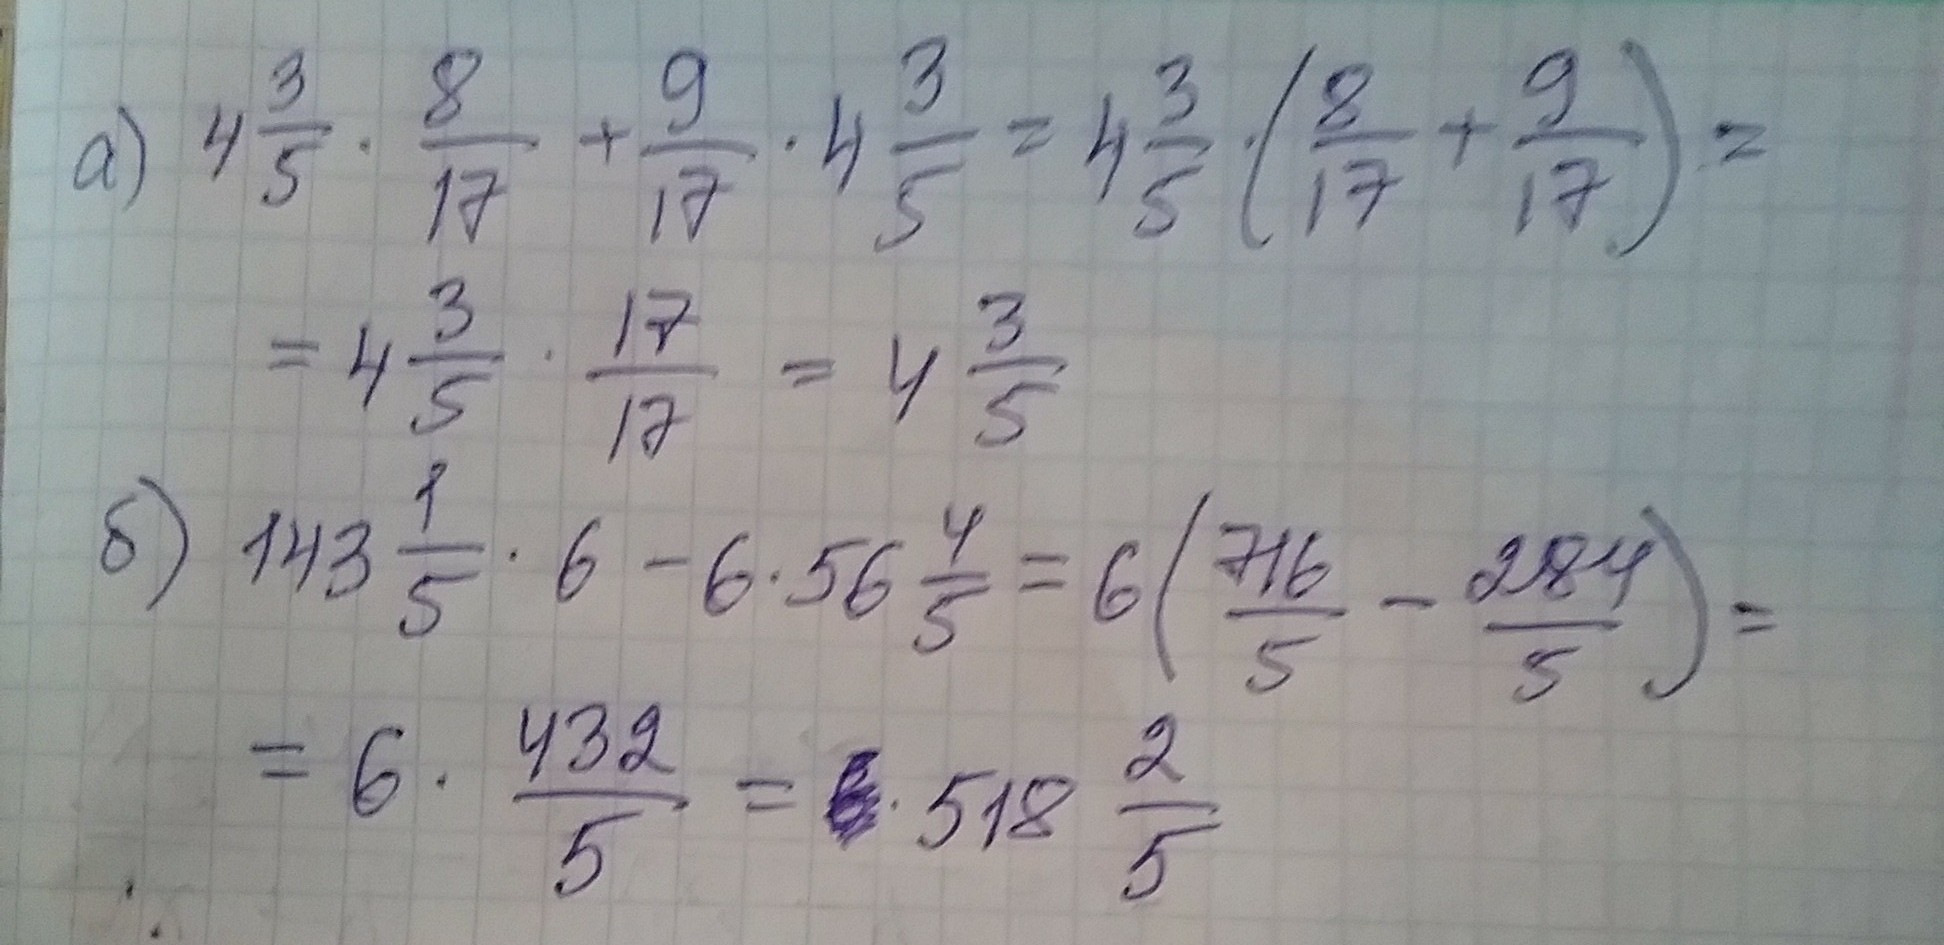 а) 4 3/5 · 8/17 + 9/17 · 4 3/5 = 4 3/5 · (8/17 + 9/17) =
= 4 3/5 · 17/17 = 4 3/5
б) 143 1/5 · 6 - 6 · 56 4/5 = 6 (716/5 - 284/5) =
= 6 · 432/5 = · 518 2/5